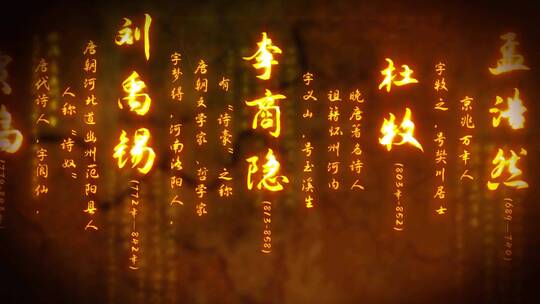 岛
唐代诗人,字阆仙,
人称“诗奴”
唐朝河北道幽州范阳县人
刘禹锡
(772年-842年)
字梦得,河南洛阳人,
唐朝文学家,哲学家
有“诗豪”之称
李商隐
(813-858)
字义山,号玉溪生
祖籍怀州河内
晚唐著名诗人
杜牧
(803年-852)
字牧之,号樊川居士
京兆万年人
孟浩然
(689-740)